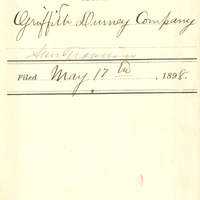 Griffith Durney Company
San Francisco
Filed May 17th, 1898.